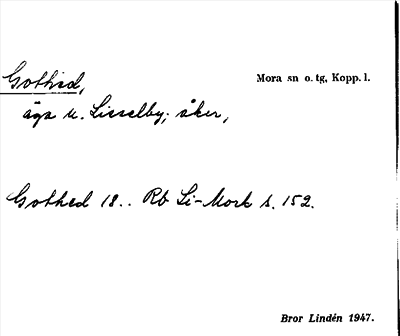 Gothed,
Mora sn o. tg, Kopp. l.
äga u. Lisselby; åker,
Gothed 18.. Rb Li-Mork s. 152.
Bror Lindén 1947.